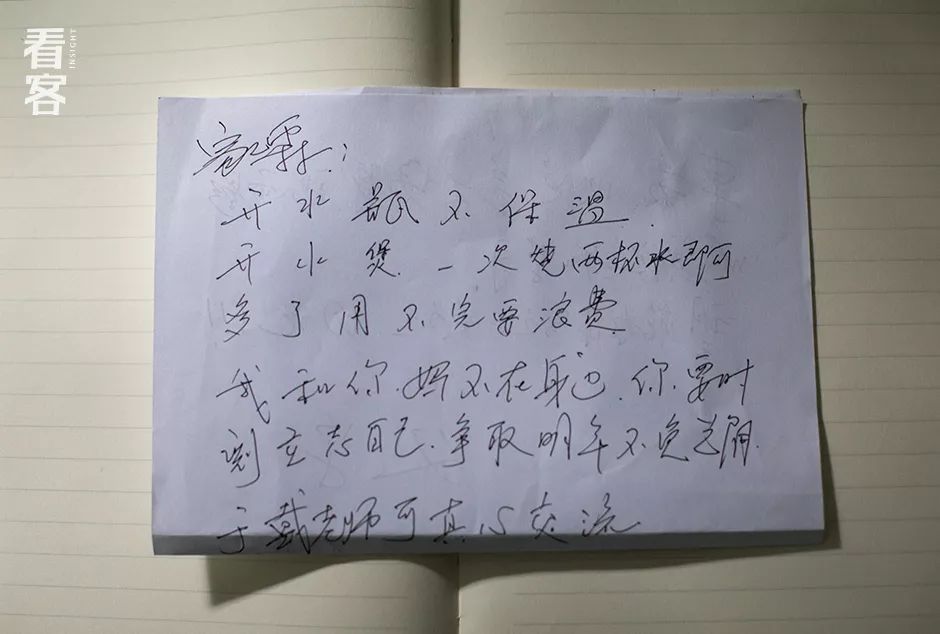 看客
INSIGHT
开水瓶不保温.
开水煲.一次烧两杯水即可
多了用不完要浪费.
我和你妈不在身边.你要时
刻立志自己.争取明年不负
于戴老师可真心交流